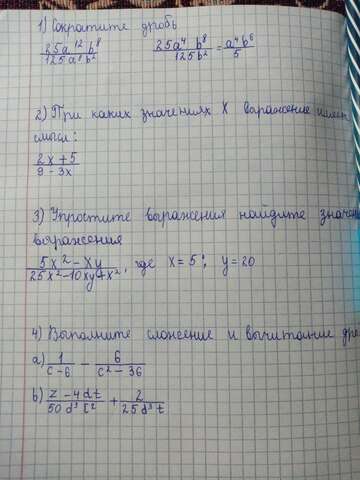 1) Сократите дробь
25a¹²b⁸/125a⁸b² 25a⁴b⁸/125b² = a⁴b⁶/5
2) При каких значениях X выражение имеет
смысл:
2x+5/9-3x
3) Упростите выражения найдите значен
выражения
5x²-xy/25x²-10xy+x², где x=5; y=20
4) Выполните сложение и вычитание дро
a) 1/c-6 - 6/c²-36
b) z-4dt/50d³t² + 2/25d³t